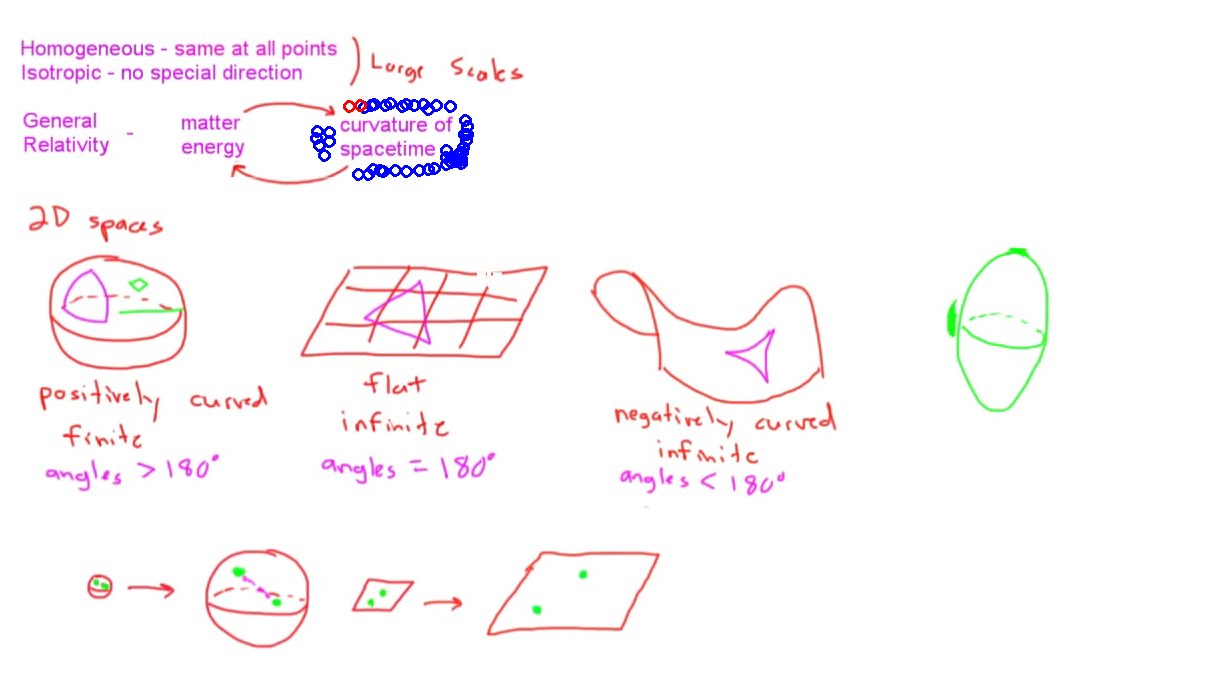 Homogeneous - same at all points
Isotropic - no special direction
Large Scales
General Relativity - matter energy
curvature of spacetime
2D spaces
positively curved
finite
angles > 180°
flat
infinite
angles = 180°
negatively curved
infinite
angles < 180°